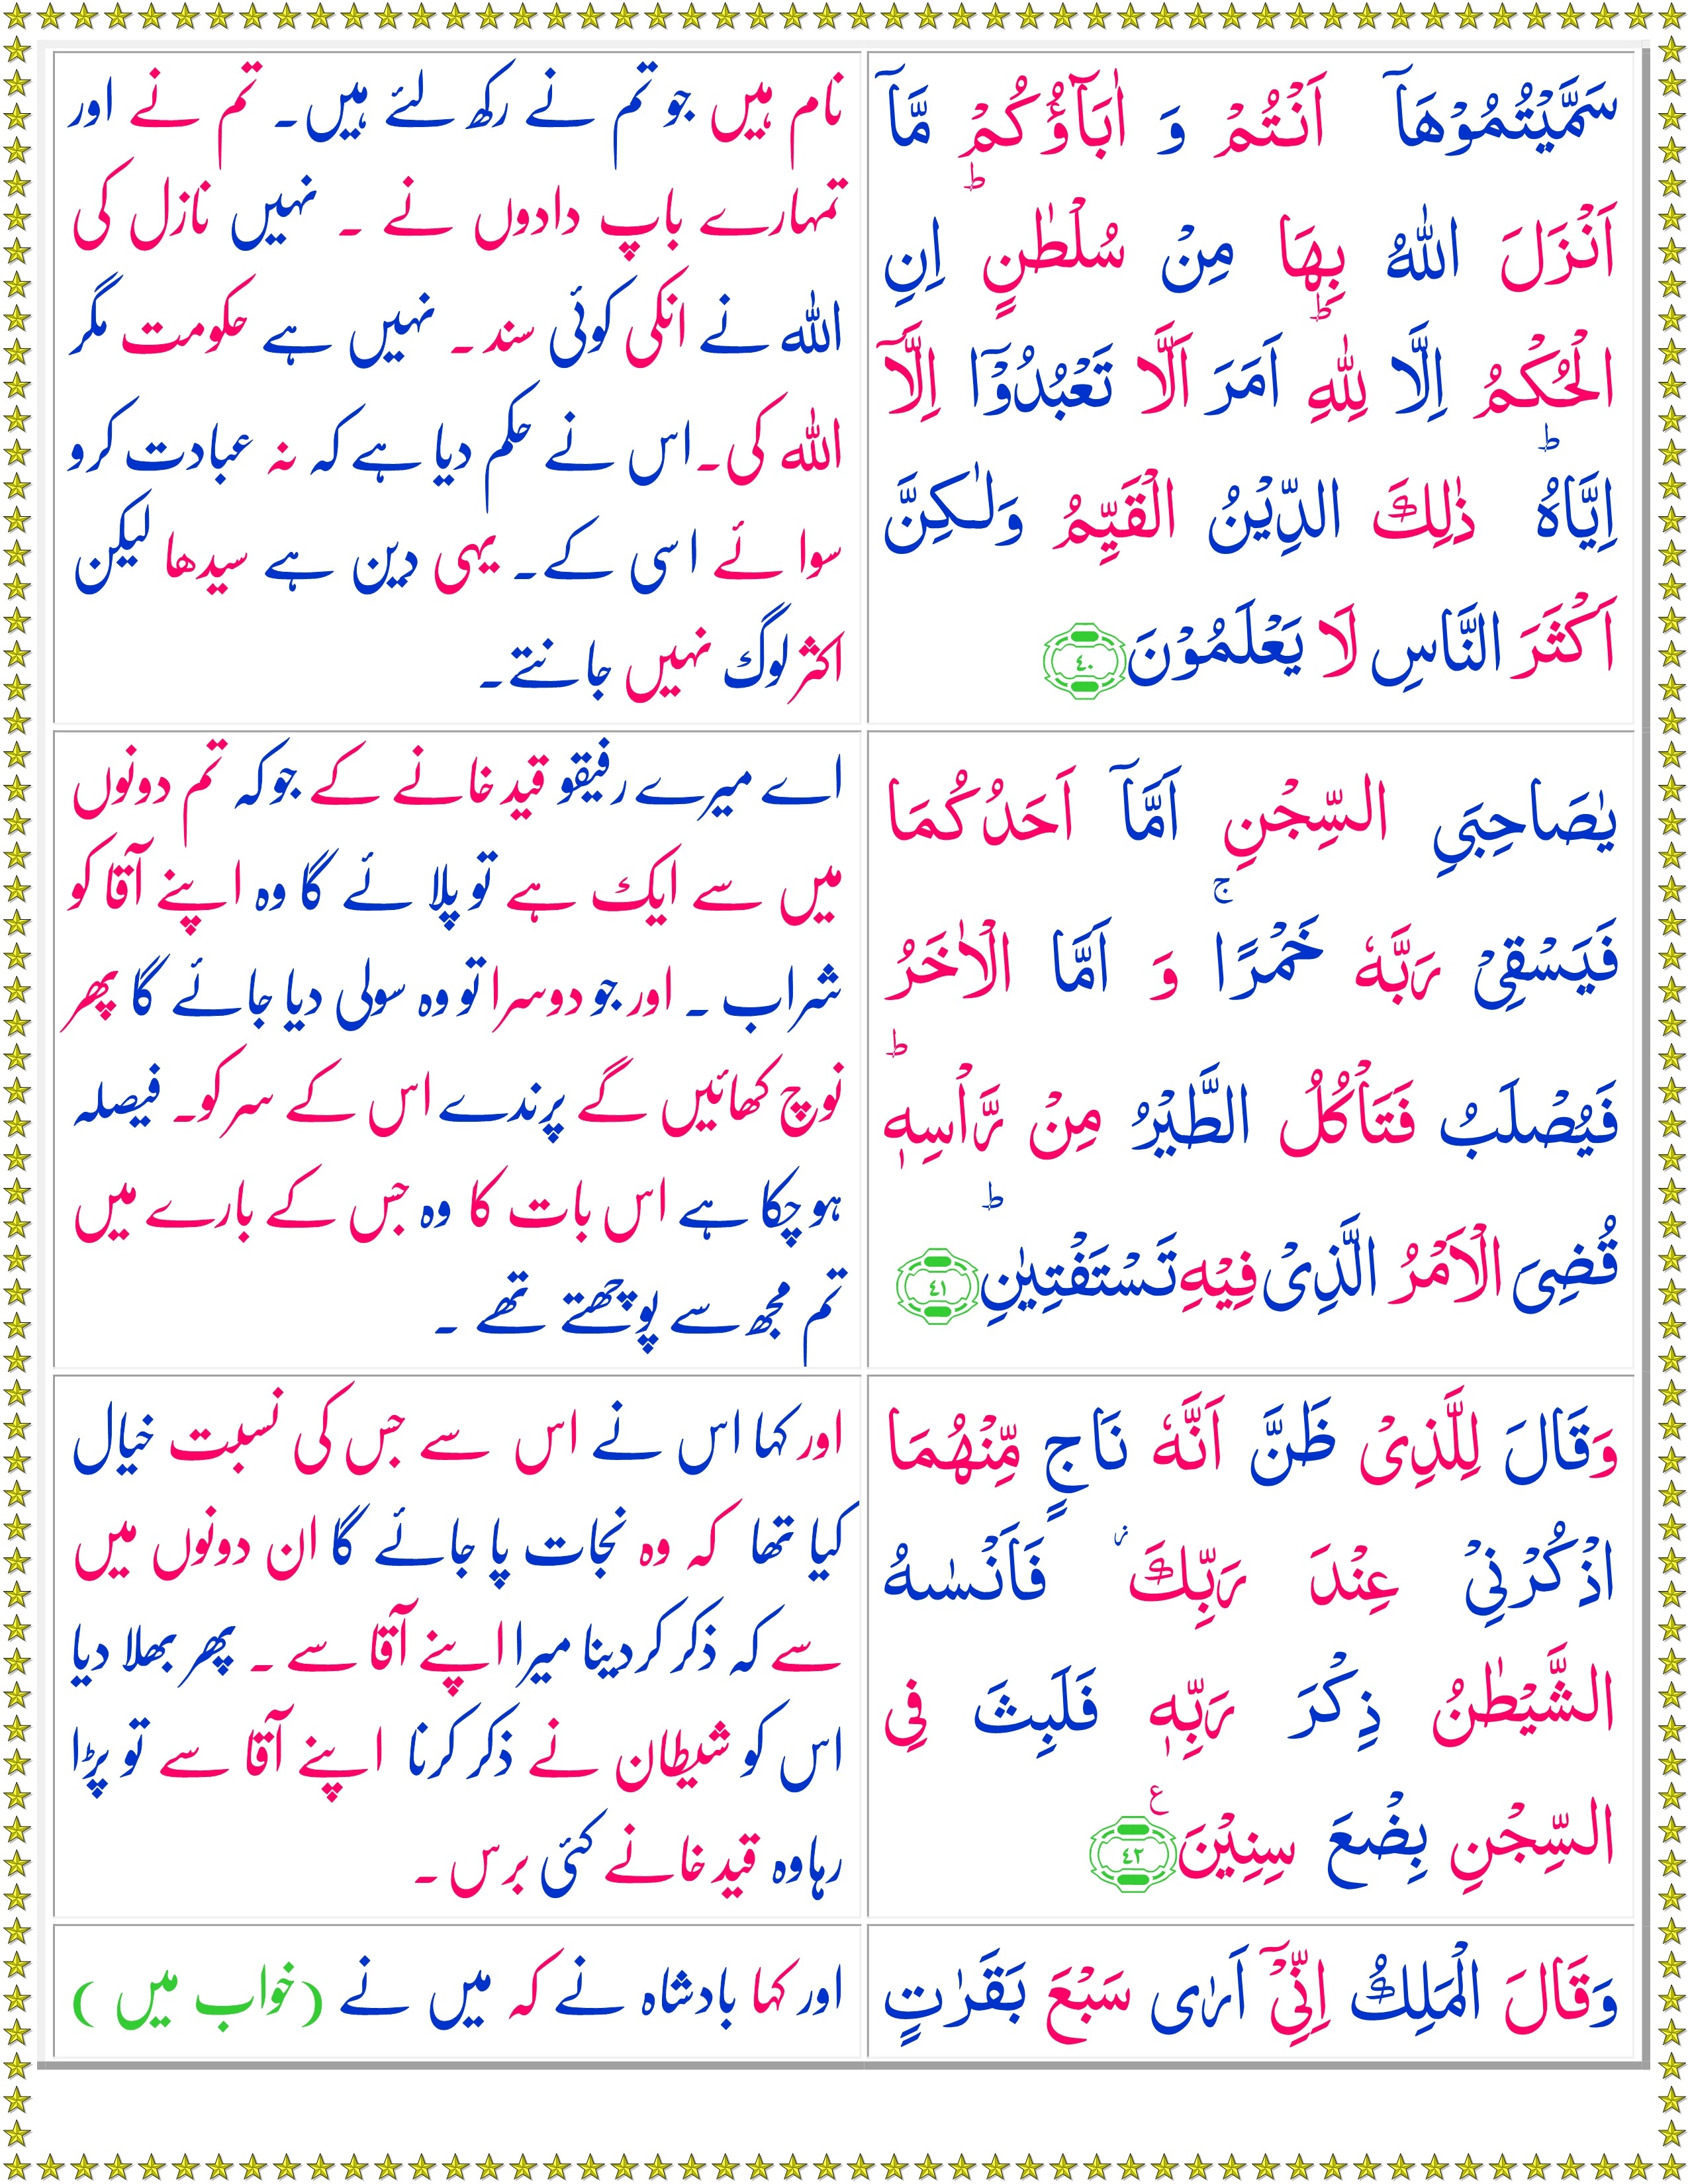 سَمَّيْتُمُوْهَآ اَنْتُمْ وَ اٰبَآؤُكُمْ مَّآ
اَنْزَلَ اللّٰهُ بِهَا مِنْ سُلْطٰنٍ ؕ اِنِ
الْحُكْمُ اِلَّا لِلّٰهِ ؕ اَمَرَ اَلَّا تَعْبُدُوْٓا اِلَّآ
اِيَّاهُ ؕ ذٰلِكَ الدِّيْنُ الْقَيِّمُ وَلٰكِنَّ
اَكْثَرَ النَّاسِ لَا يَعْلَمُوْنَ ٤٠
نام ہیں جو تم نے رکھ لئے ہیں۔ تم نے اور
تمہارے باپ دادوں نے ۔ نہیں نازل کی
اللہ نے انکی کوئی سند ۔ نہیں ہے حکومت مگر
اللہ کی۔ اس نے حکم دیا ہے کہ نہ عبادت کرو
سوائے اسی کے۔ یہی دین ہے سیدھا لیکن
اکثر لوگ نہیں جانتے۔
يٰصَاحِبَىِ السِّجْنِ اَمَّآ اَحَدُكُمَا
فَيَسْقِىْ رَبَّهٗ خَمْرًا ۚ وَ اَمَّا الْاٰخَرُ
فَيُصْلَبُ فَتَاْكُلُ الطَّيْرُ مِنْ رَّاْسِهٖ ؕ
قُضِىَ الْاَمْرُ الَّذِىْ فِيْهِ تَسْتَفْتِيٰنِ ؕ ٤١
اے میرے رفیقو قید خانے کے جو کہ تم دونوں
میں سے ایک ہے تو پلائے گا وہ اپنے آقا کو
شراب ۔ اور جو دوسرا تو وہ سولی دیا جائے گا پھر
نوچ کھائیں گے پرندے اس کے سر کو۔ فیصلہ
ہو چکا ہے اس بات کا وہ جس کے بارے میں
تم مجھ سے پوچھتے تھے ۔
وَقَالَ لِلَّذِىْ ظَنَّ اَنَّهٗ نَاجٍ مِّنْهُمَا
اذْكُرْنِىْ عِنْدَ رَبِّكَ ز فَاَنْسٰىهُ
الشَّيْطٰنُ ذِكْرَ رَبِّهٖ فَلَبِثَ فِى
السِّجْنِ بِضْعَ سِنِيْنَ ع ٤٢
اور کہا اس نے اس سے جس کی نسبت خیال
کیا تھا کہ وہ نجات پا جائے گا ان دونوں میں
سے کہ ذکر کردینا میرا اپنے آقا سے ۔ پھر بھلا دیا
اس کو شیطان نے ذکر کرنا اپنے آقا سے تو پڑا
رہا وہ قید خانے کئی برس ۔
وَقَالَ الْمَلِكُ اِنِّىْٓ اَرٰى سَبْعَ بَقَرٰتٍ
اور کہا بادشاہ نے کہ میں نے (خواب میں )